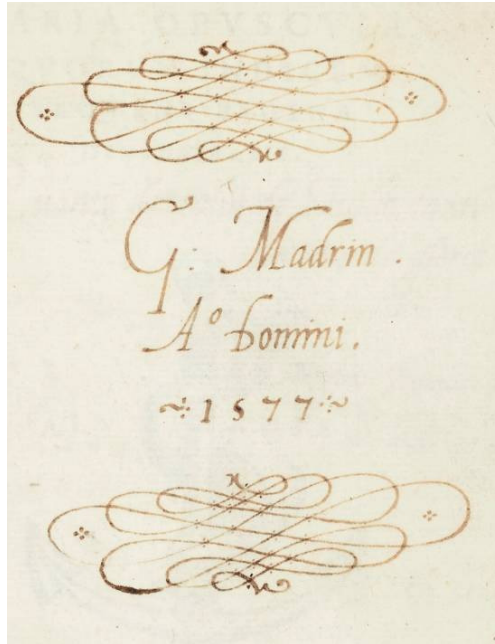 G: Madrin.
Aº Domini.
1577